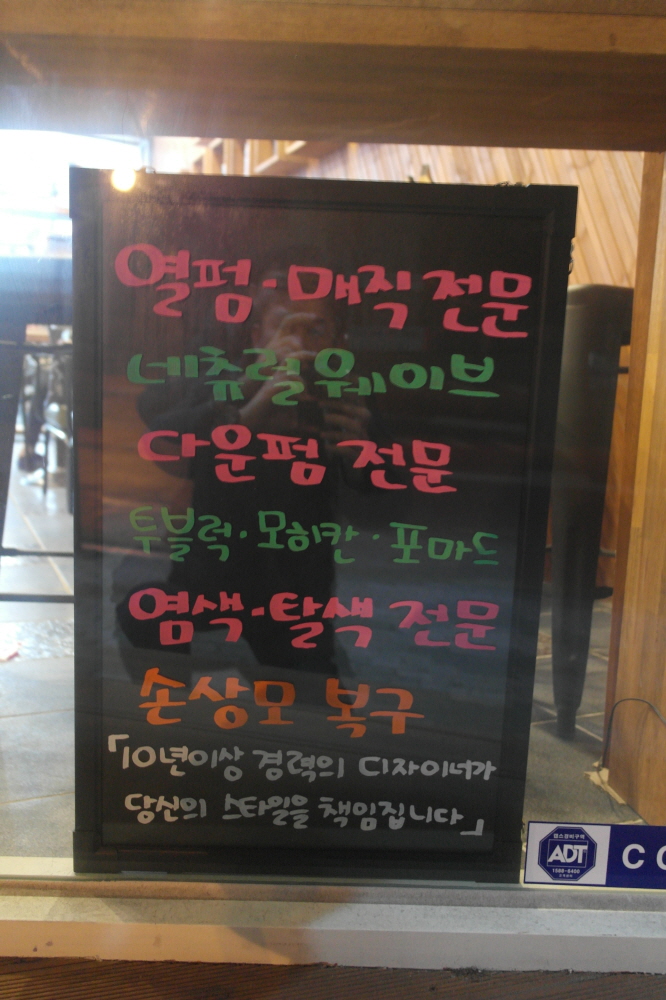 열펌·매직 전문
네츄럴 웨이브
다운펌 전문
투블럭·모히칸·포마드
염색·탈색 전문
손상모 복구
「10년이상 경력의 디자이너가
당신의 스타일을 책임집니다」
캡스경비구역
ADT
1588-6400
C